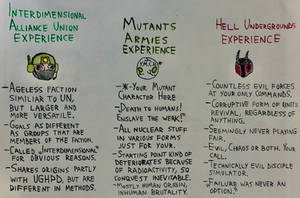 Interdimensional
Alliance Union
Experience
-Ageless faction
similiar to UN,
but larger and
more versatile.
-Goals as different
as groups that are
members of the faction.
-Called „Interdimensional"
for obvious reasons.
-Shares origins partly
with UGHPD, but are
different in methods.
Mutants
Armies
Experience
-*-Your Mutant
Character Here
-„Death to humans!
Enslave the werk!"
-All nuclear stuff
in various forms
just for your.
-Starting point kind of
deteriorates because
of radioactivity, so
conquest inevitable.
-Mostly human origin,
inhuman brutality.
Hell Undergrounds
Experience
-Countless evil forces
at your only commands.
-Corruptive form of units
revival, regardless of
anything.
-Seemingly never playing
fair.
-Evil, Chaos or both. Your
call.
-Technically evil disciple
simulator.
-„Failure was never an
option."